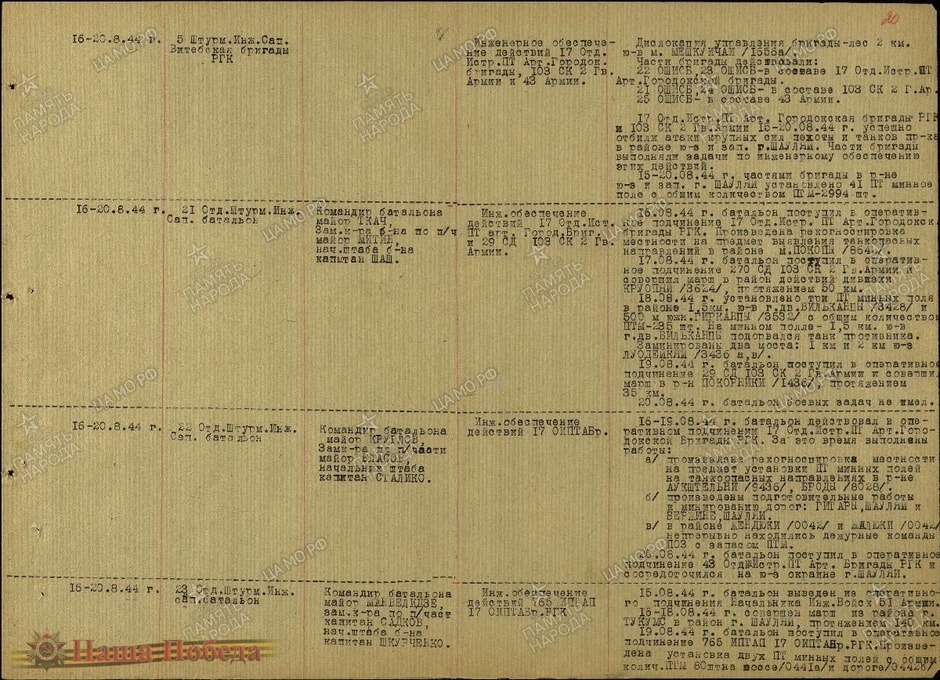 20
16-20.8.44 г.
5 Штурм.Инж.Сап.
Витебская бригады
РГК
Инженерное обеспече-
ние действий 17 Отд.
Истр.ПТ Арт.Городок.
бригады, 103 СК 2 Гв.
Армии и 43 Армии.
Дислокация управления бригады-лес 2 км.
ю-в м. МЕШКУЙЧАЙ /1556а/.
Части бригады действовали:
22 ОШИСБ, 23 ОШИСБ-в составе 17 Отд.Истр.ПТ
Арт.Городокской бригады.
21 ОШИСБ,24 ОШИСБ- в составе 103 СК 2 Г.Ар.
25 ОШИСБ- в составе 43 Армии.
17 Отд.Истр.ПТ Арт. Городокская бригады РГК
и 103 СК 2 Гв.Армии 15-20.08.44 г. успешно
отбили атаки крупных сил пехоты и танков пр-ка
в районе ю-з и зап. г.ШАУЛЯЙ. Части бригады
выполняли задачи по инженерному обеспечению
этих действий.
15-20.08.44 г. частями бригады в р-не
ю-з и зап. г. ШАУЛЯЙ установлено 41 ПТ минное
поле с общим количеством ПТМ-2994 шт.
16-20.8.44 г.
21 Отд.Штурм.Инж.
Сап. батальон
Командир батальона
майор ТКАЧ,
Зам.к-ра б-на по п/ч
майор МИТИН,
нач.штаба б-на
капитан ШАШ.
Инж.обеспечение
действий 17 Отд.Ист.
ПТ арт. Город.Бриг.
и 29 СД 103 СК 2 Гв.
Армии.
16.08.44 г. батальон поступил в оператив-
ное подчинение 17 Отд.Истр. ПТ Арт.Городокск.
бригады РГК. Произведена рекогносцировка
местности на предмет выявления танкоопасных
направлений в районе м.ПОКОПЫ /8642/.
17.08.44 г. батальон поступил в оператив-
ное подчинение 270 СД 103 СК 2 Гв.Армии и
совершил марш в район действий дивизии
КРУОПНИ /3624/, протяжением 50 км.
18.08.44 г. установлено три ПТ минных поля
в районе 1,5км. ю-в г.дв.БИЛЬКАНЦЫ /3428/ и
500 м южн.ГИРКАНЦЫ /3532/ с общим количеством
ПТМ-235 шт. На минном поле- 1,5 км. ю-в
г.дв.БИЛЬКАНЦЫ подорвался танк противника.
Заминированы два моста: 1 км и 2 км ю-з
ЛУОДЕЙКЯЙ /3436 а,в/.
19.08.44 г. батальон поступил в оперативное
подчинение 29 СД 103 СК 2 Гв.Армии и совершил
марш в р-н ПОКОРНИКИ /1436/, протяжением
35 км.
20.08.44 г. батальон боевых задач не имел.
16-20.8.44 г.
22 Отд.Штурм.Инж.
Сап. батальон
Командир батальона
майор КРУГЛОВ,
Замк-ра по п/части
майор ВЛАСОВ,
начальник штаба
капитан СТАЛИКО.
Инж.обеспечение
действий 17 ОИПТАБр.
16-19.08.44 г. батальон действовал в опе-
ративном подчинении 17 Отд.Истр.ПТ Арт.Горо-
докской Бригады РГК. За это время выполнены
работы:
а/ произведена рекогносцировка местности
на предмет установки ПТ минных полей
на танкоопасных направлениях в р-не
АУКШТЕЛЬНИ /9436/, БРОДЫ /8028/.
б/ произведены подготовительные работы
к минированию дорог: ГИТАРЫ,ШАУЛЯЙ и
ВЕРЖИНЕ,ШАУЛЯЙ.
в/ в районе /0042/ и /0042/
непрерывно находились дежурные команды
ПОЗ с запасом ПТМ.
20.08.44 г. батальон поступил в оперативное
подчинение 43 Отд.Истр.ПТ Арт. Бригады РГК и
сосредоточился на ю-з окраине г.ШАУЛЯЙ.
16-20.8.44 г.
23 Отд.Штурм.Инж.
сап.батальон
Командир батальона
майор
зам.к-ра по п/част
капитан САДКОВ,
нач.штаба б-на
капитан ШКУРЧЕНКО.
Инж.обеспечение
действий 765 ИПТАП
17 ОИПТАБр.РГК
15.08.44 г. батальон выведен из оперативно-
го подчинения Начальника Инж.Войск 51 Армии.
16-18.08.44 г. совершен марш из района г.
ТУКУМС в район г. ШАУЛЯЙ, протяжением 140 км.
19.08.44 г. батальон поступил в оперативное
подчинение 765 ИПТАП 17 ОИПТАБр.РГК.Произве-
дена установка двух ПТ минных полей с общим
колич.ПТМ 80штна шоссе/0441а/и дороге/0442б/
Наша Победа
ПАМЯТЬ НАРОДА
ЦАМО.РФ